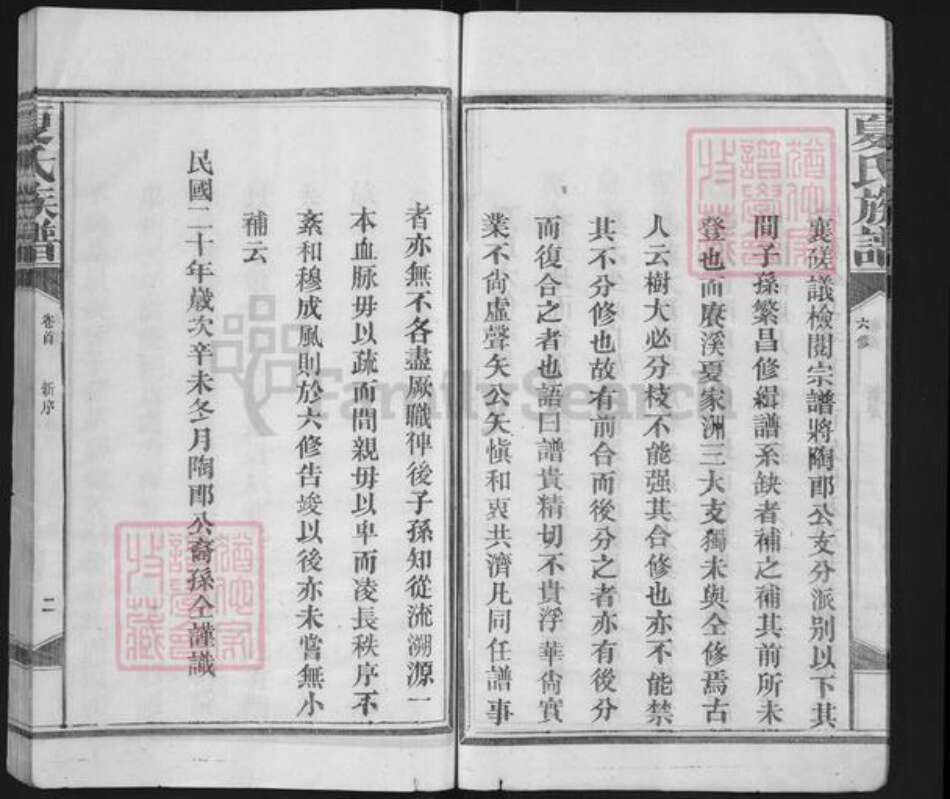 夏氏族譜
六修
襄硪議檢閱宗譜將陶邨公文分派别以下其
間子孫繁昌修緝譜系缺者補之補其前所未
登也而賡溪夏家洲三大支獨未與仝修焉古
人云樹大必分枝不能强其合修也亦不能禁
其不分修也故有前合而後分之者亦有後分
而復合之者也語曰譜貴精切不貴浮華尙實
業不尙虛聲矢公矢愼和衷共濟凡同任譜事
者亦無不各盡厥職俾後子孫知從流溯源一
本血脉毋以疏而間親毋以卑而凌長秩序不
紊和穆成風則於六修告竣以後亦未嘗無小
補云
民國二十年歲次辛未冬月陶邨公裔孫仝謹識
夏氏族譜
卷首 新序
二
猶他家譜學會收藏
猶他家譜學會收藏
FamilySearch